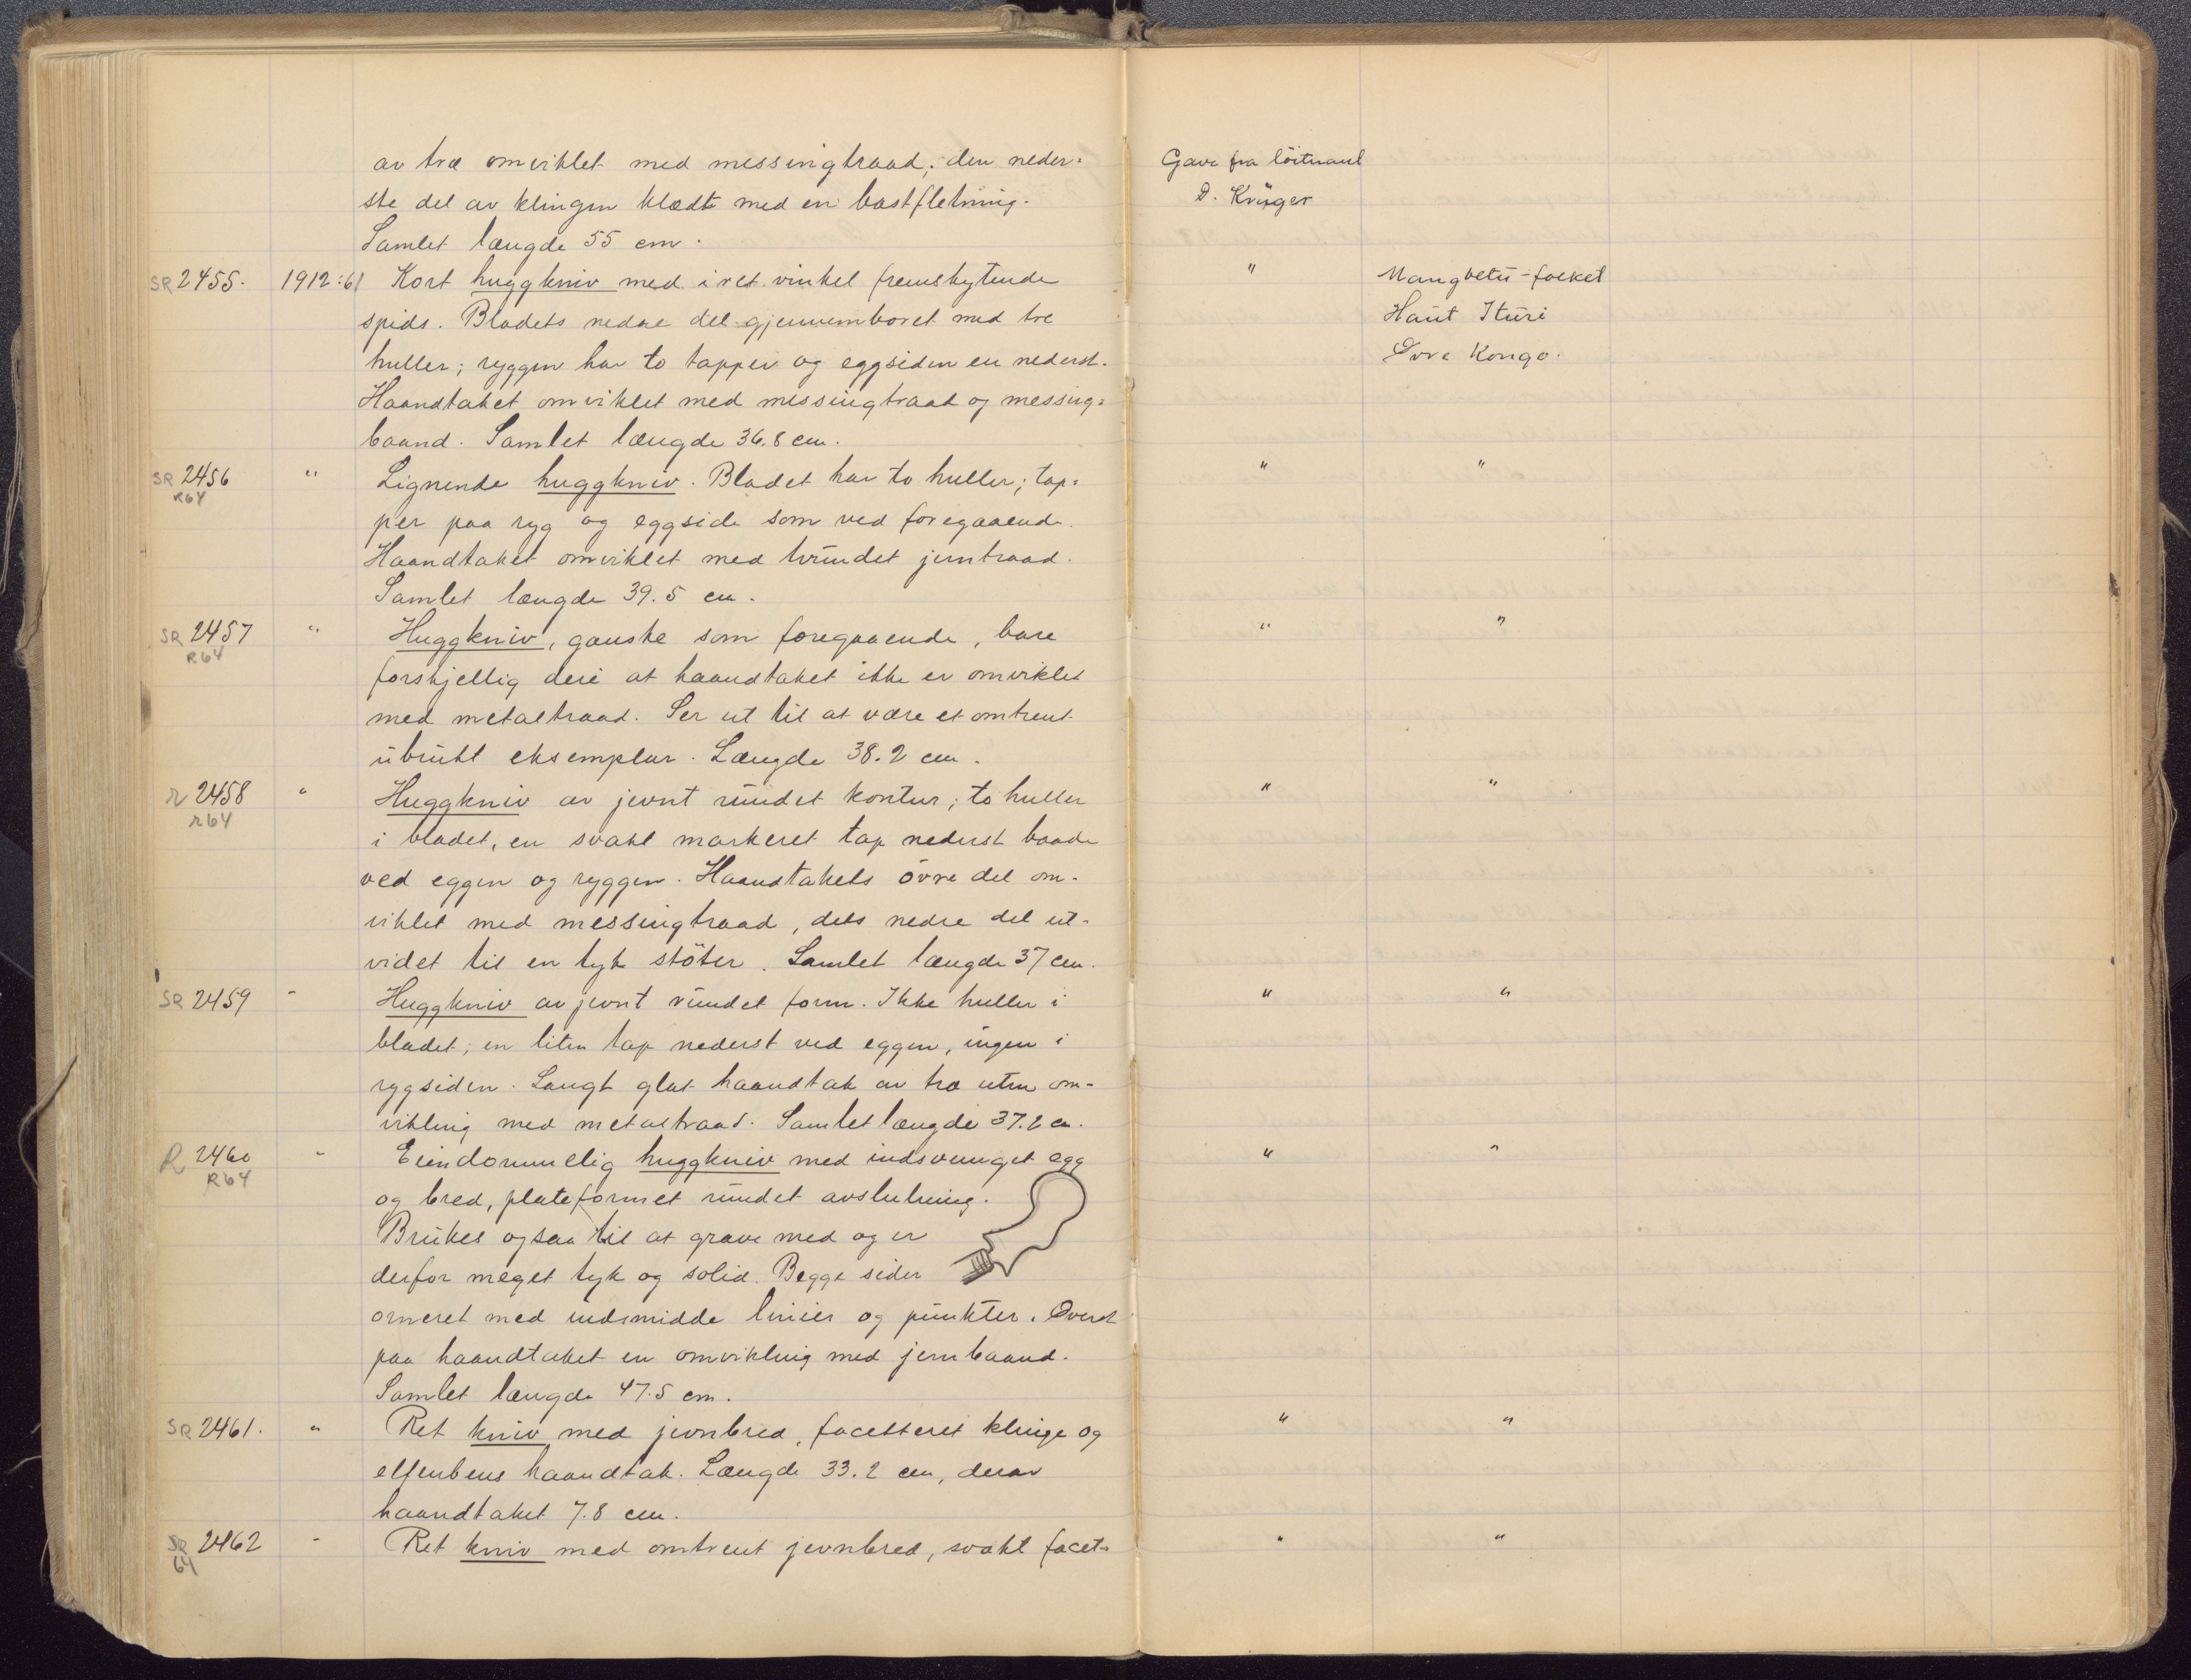 av træ omviklet med messingtraad; den neder=
ste del av klingen klædt med en bastfletning.
Samlet længde 55 cm.
SR 2455. 1912:61 Kort huggkniv med i ret vinkel fremskytende
spids. Bladets nedre del gjennemboret med tre
huller; ryggen har to tapper og eggsiden en nederst.
Haandtaket omviklet med messingtraad og messing=
baand. Samlet længde 36.8 cm.
SR 2456 " Lignende huggkniv. Bladet har to huller; tap=
R64
per paa ryg og eggside som ved foregaaende.
Haandtaket omviklet med tvundet jerntraad.
Samlet længde 39.5 cm.
SR 2457 " Huggkniv, ganske som foregaaende, bare
R64
forskjellig deri at haandtaket ikke er omviklet
med metaltraad. Ser ut til at være et omtrent
ubrukt eksemplar. Længde 38.2 cm.
r 2458 " Huggkniv av jevnt rundet kontur; to huller
r64
i bladet, en svakt markeret tap nederst baade
ved eggen og ryggen. Haandtakets övre del om-
viklet med messingtraad, dets nedre del ut-
videt til en tyk stöter. Samlet længde 37 cm.
SR 2459 " Huggkniv av jevnt rundet form. Ikke huller i
bladet; en liten tap nederst ved eggen, ingen i
rygsiden. Langt glat haandtak av træ uten om-
vikling med metaltraad. Samlet længde 37.2 cm.
R 2460 " Eiendommelig huggkniv med indsvunget egg
R64
og bred, plateformet rundet avslutning.
Brukes ogsaa til at grave med og er
derfor meget tyk og solid. Begge sider
orneret med indsmidde linier og punkter. Øverst
paa haandtaket en omvikling med jernbaand.
Samlet længde 47.5 cm.
SR 2461. " Ret kniv med jevnbred, facetteret klinge og
elfenbens haandtak. Længde 33.2 cm, derav
haandtaket 7.8 cm.
SR 2462 " Ret kniv med omtrent jevnbred, svakt facet-
64
Gave fra löitnant
D. Krüger
" Mangbetu-folket
Haut Ituri
Övre Kongo.
" "
" "
" "
" "
" "
" "
" "